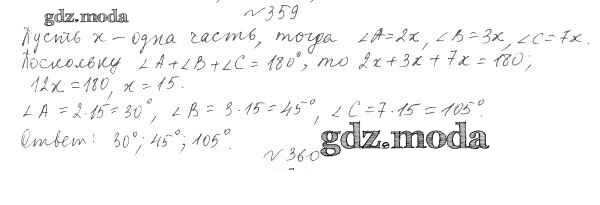 №359
gdz.moda
Пусть x – одна часть, тогда ∠A=2x, ∠B=3x, ∠C=7x.
Поскольку ∠A+∠B+∠C=180°, то 2x+3x+7x=180;
12x=180, x=15.
∠A=2·15=30°, ∠B=3·15=45°, ∠C=7·15=105°.
Ответ: 30°; 45°; 105°.
gdz.moda
№360